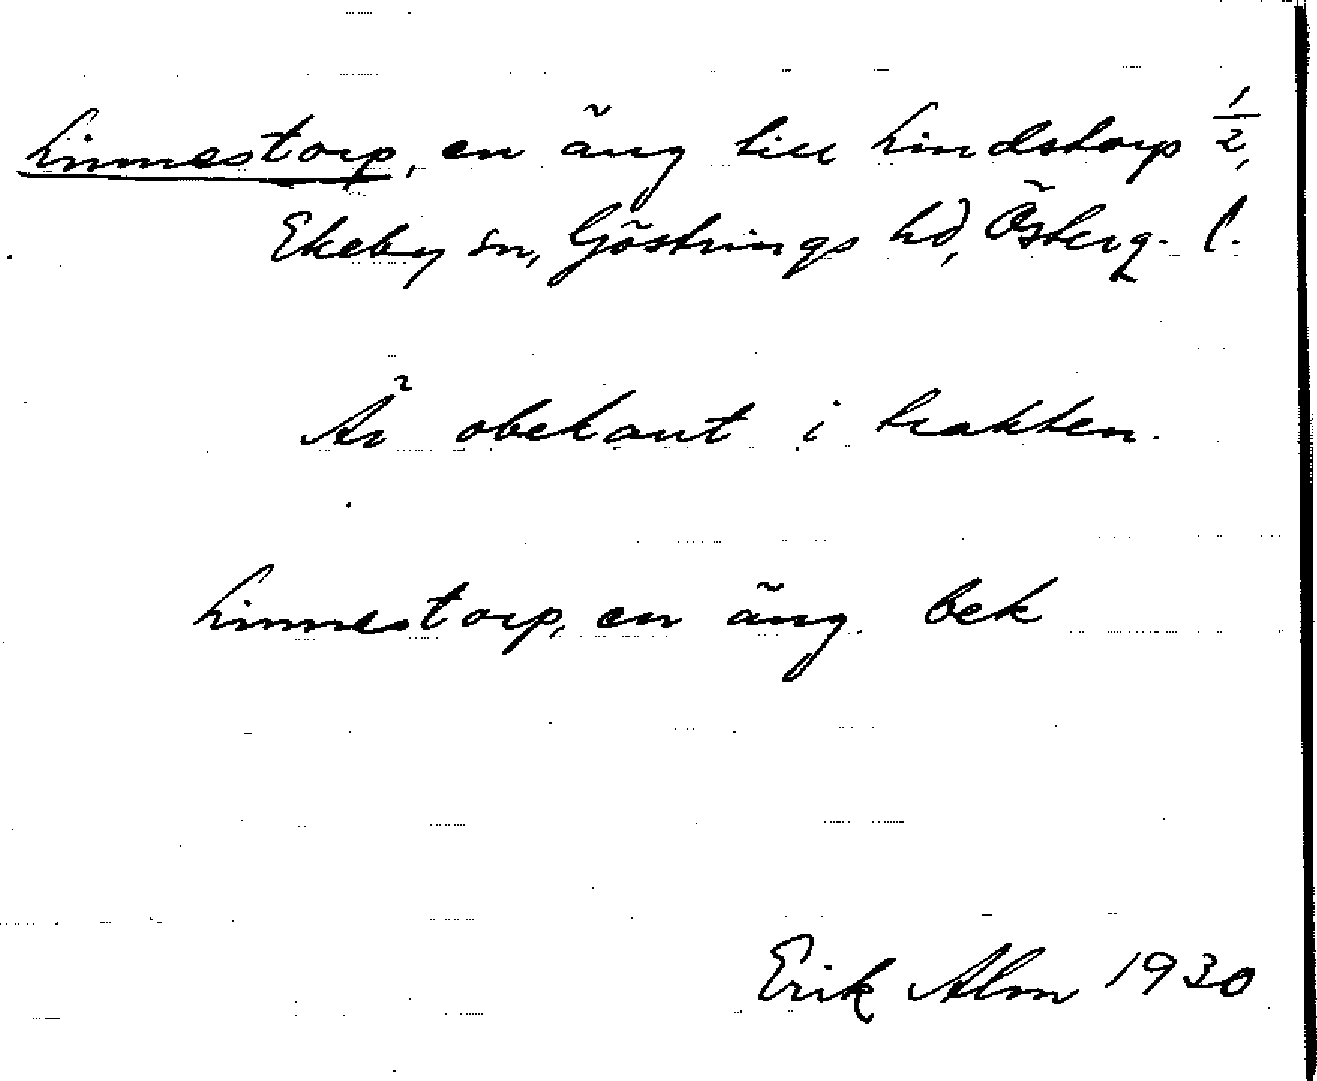 Linnestorp, en äng till Lindstorp 1/2,
Ekeby sn, Göstrings hd, Österg. l.
Är obekant i trakten.
Linnestorp, en äng. bek
Erik Alm 1930